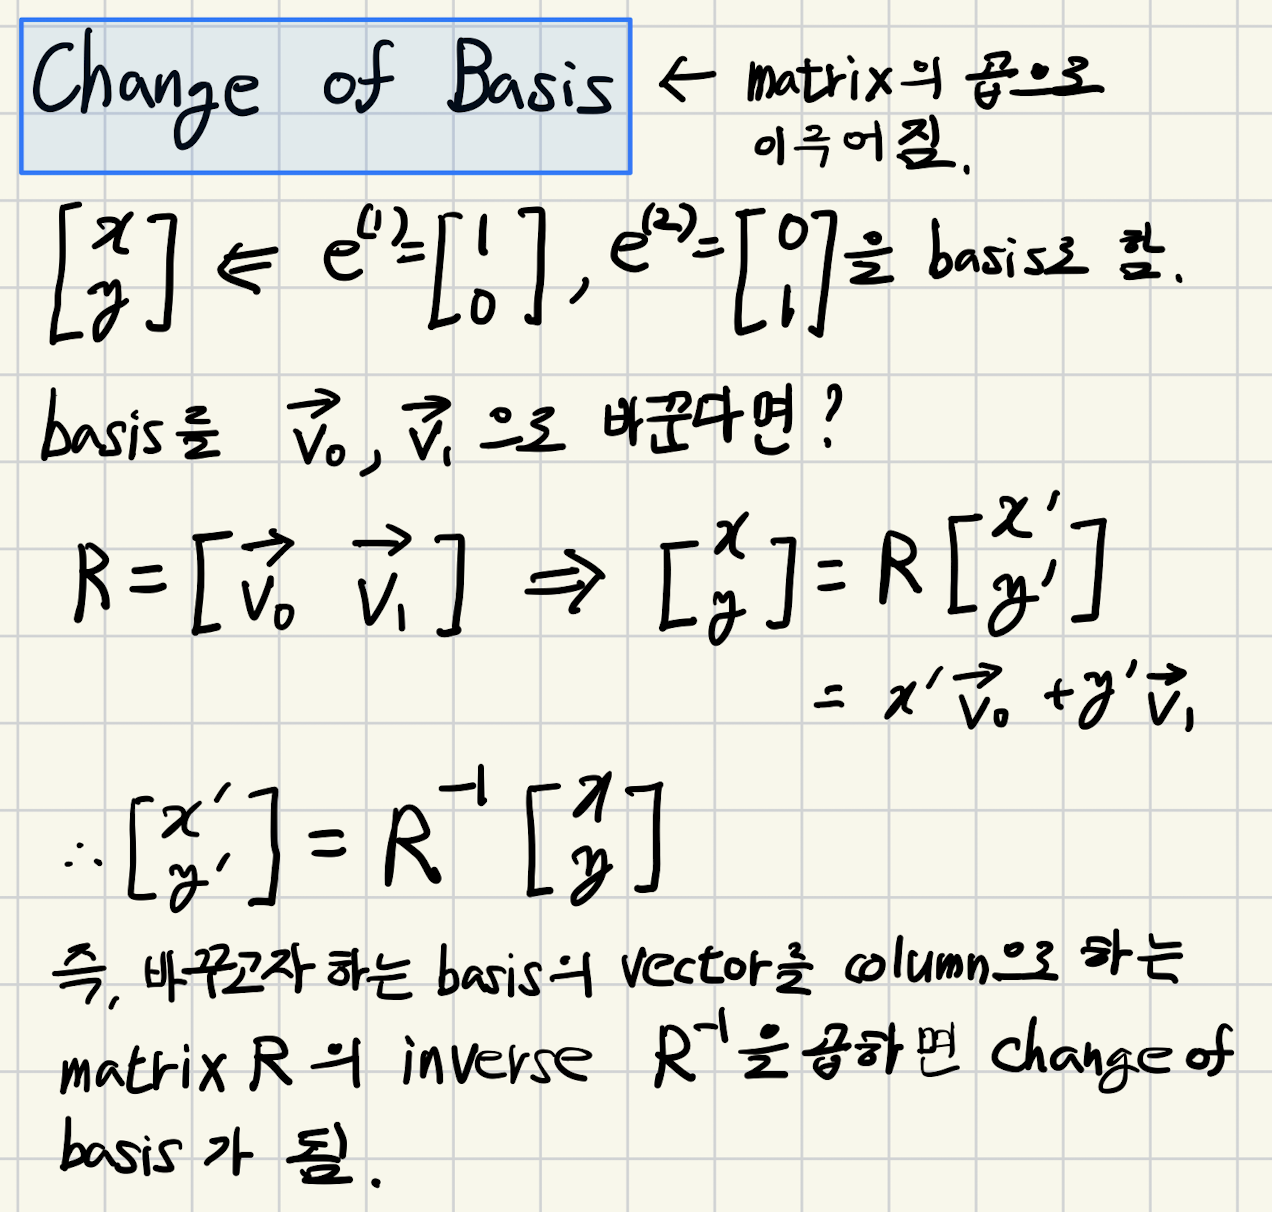 Change of Basis ← matrix의 곱으로
이루어짐.
[x y] ⇐ e⁽¹⁾=[1 0], e⁽²⁾=[0 1]을 basis로 함.
basis를 v₀→, v₁→으로 바꾼다면?
R = [v₀→ v₁→] ⇒ [x y] = R [x' y']
= x'v₀→ + y'v₁→
∴ [x' y'] = R⁻¹ [x y]
즉, 바꾸고자 하는 basis의 vector를 column으로 하는
matrix R의 inverse R⁻¹을 곱하면 change of
basis가 됨.